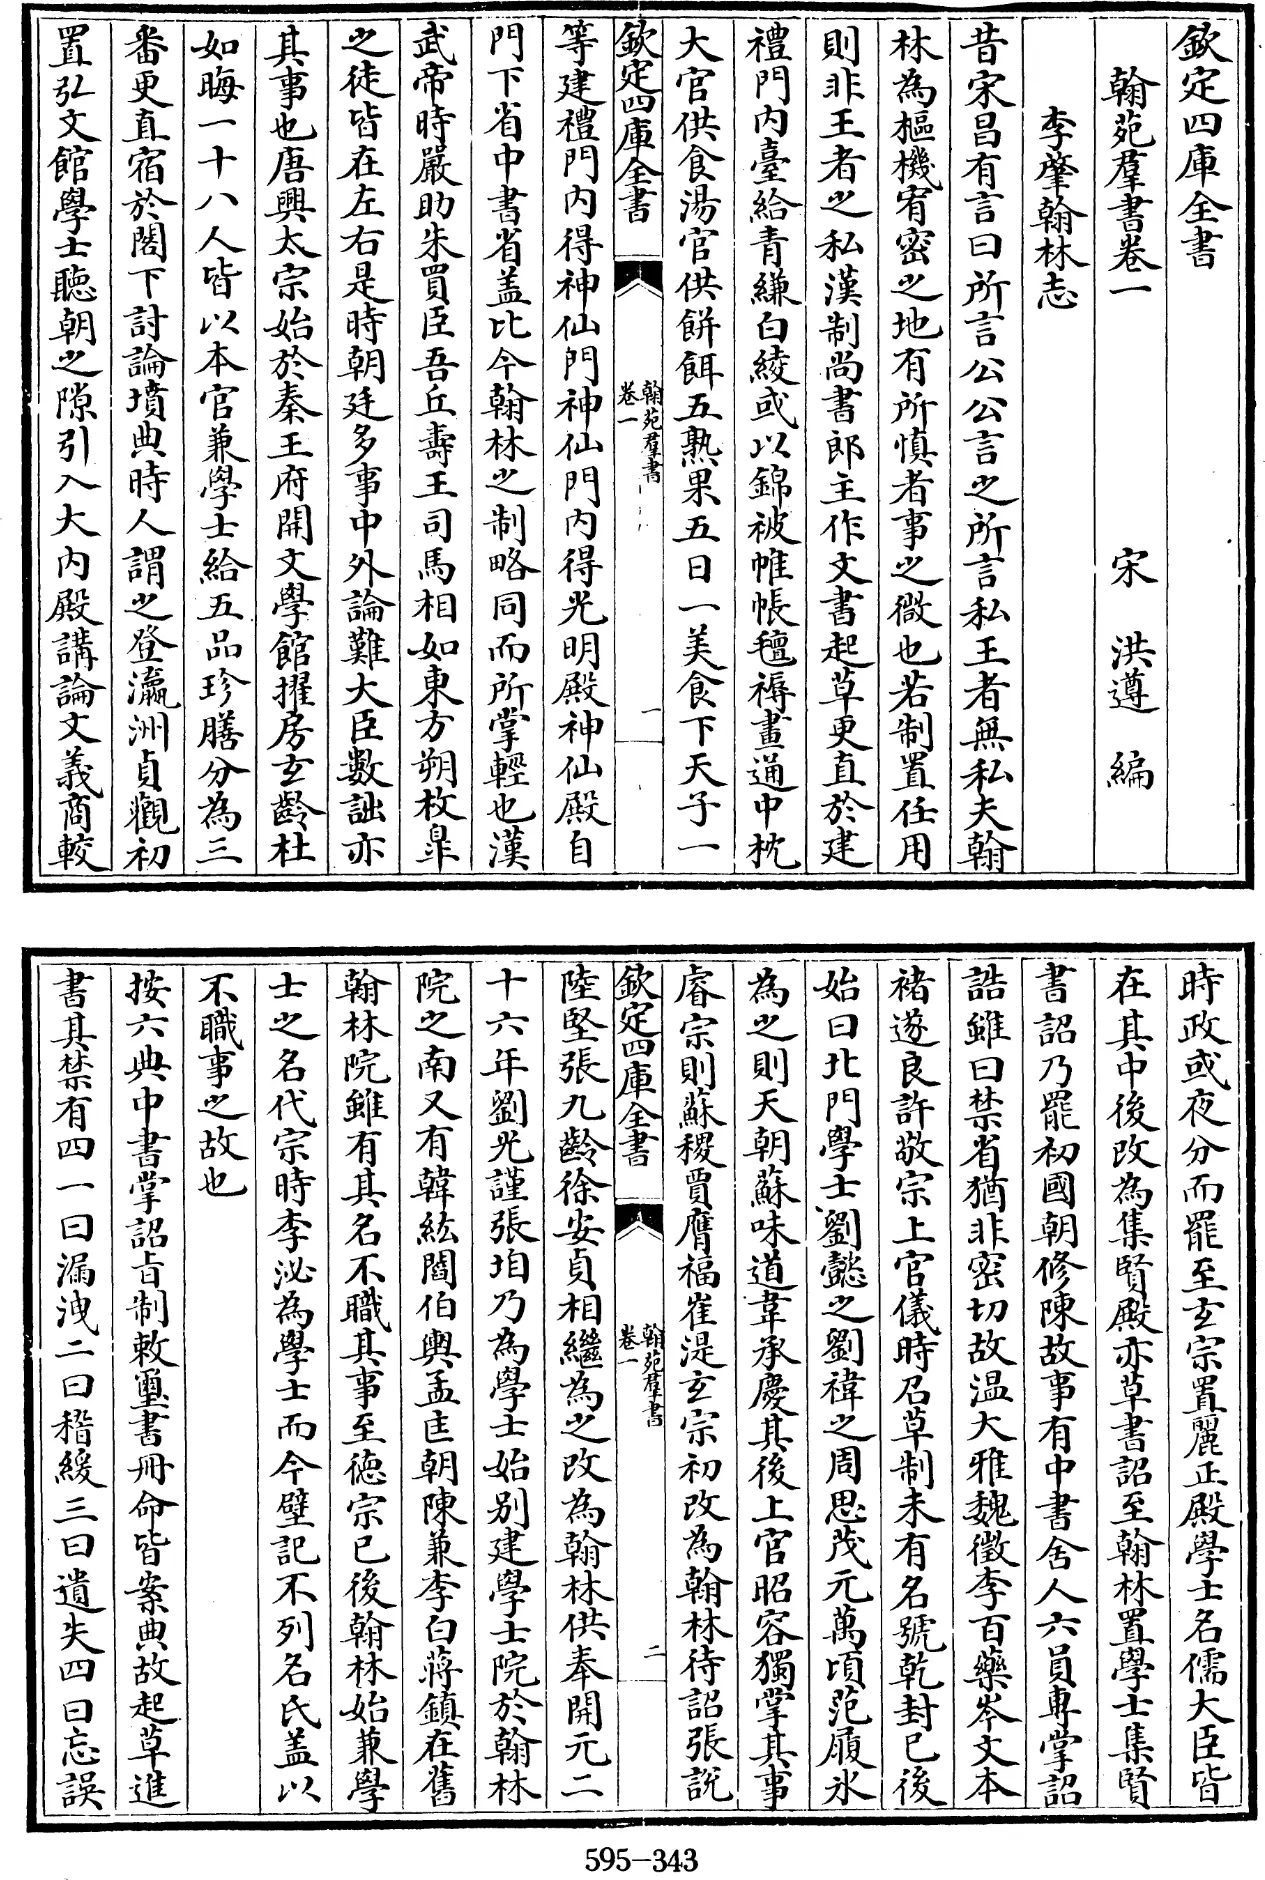 欽定四庫全書
翰苑羣書卷一
宋 洪遵 編
李肇翰林志
昔宋昌有言曰所言公公言之所言私王者無私夫翰
林為樞機宥密之地有所慎者事之微也若制置任用
則非王者之私漢制尚書郎主作文書起草更直於建
禮門內臺給青縑白綾或以錦被帷帳氊褥畫通中枕
大官供食湯官供餅餌五熟果五日一美食下天子一
欽定四庫全書
翰苑羣書
卷一
一
等建禮門內得神仙門神仙門內得光明殿神仙殿自
門下省中書省盖比今翰林之制略同而所掌輕也漢
武帝時嚴助朱買臣吾丘壽王司馬相如東方朔枚臯
之徒皆在左右是時朝廷多事中外論難大臣數詘亦
其事也唐興太宗始於秦王府開文學館擢房玄齡杜
如晦一十八人皆以本官兼學士給五品珍膳分為三
番更直宿於閣下討論墳典時人謂之登瀛洲貞觀初
置弘文館學士聽朝之隙引入大內殿講論文義商較
時政或夜分而罷至玄宗置麗正殿學士名儒大臣皆
在其中後改為集賢殿亦草書詔至翰林置學士集賢
書詔乃罷初國朝修陳故事有中書舍人六員專掌詔
誥雖曰禁省猶非密切故温大雅魏徵李百藥岑文本
褚遂良許敬宗上官儀時召草制未有名號乾封已後
始曰北門學士劉懿之劉禕之周思茂元萬頃范履氷
為之則天朝蘇味道韋承慶其後上官昭容獨掌其事
睿宗則蘇稷賈膺福崔湜玄宗初改為翰林待詔張說
欽定四庫全書
翰苑羣書
卷一
二
陸堅張九齡徐安貞相繼為之改為翰林供奉開元二
十六年劉光謹張垍乃為學士始别建學士院於翰林
院之南又有韓紘閻伯輿孟匡朝陳兼李白蔣鎮在舊
翰林院雖有其名不職其事至德宗已後翰林始兼學
士之名代宗時李泌為學士而今壁記不列名氏盖以
不職事之故也
按六典中書掌詔旨制敕璽書冊命皆案典故起草進
書其禁有四一曰漏洩二曰稽緩三曰遺失四曰忘誤
595-343